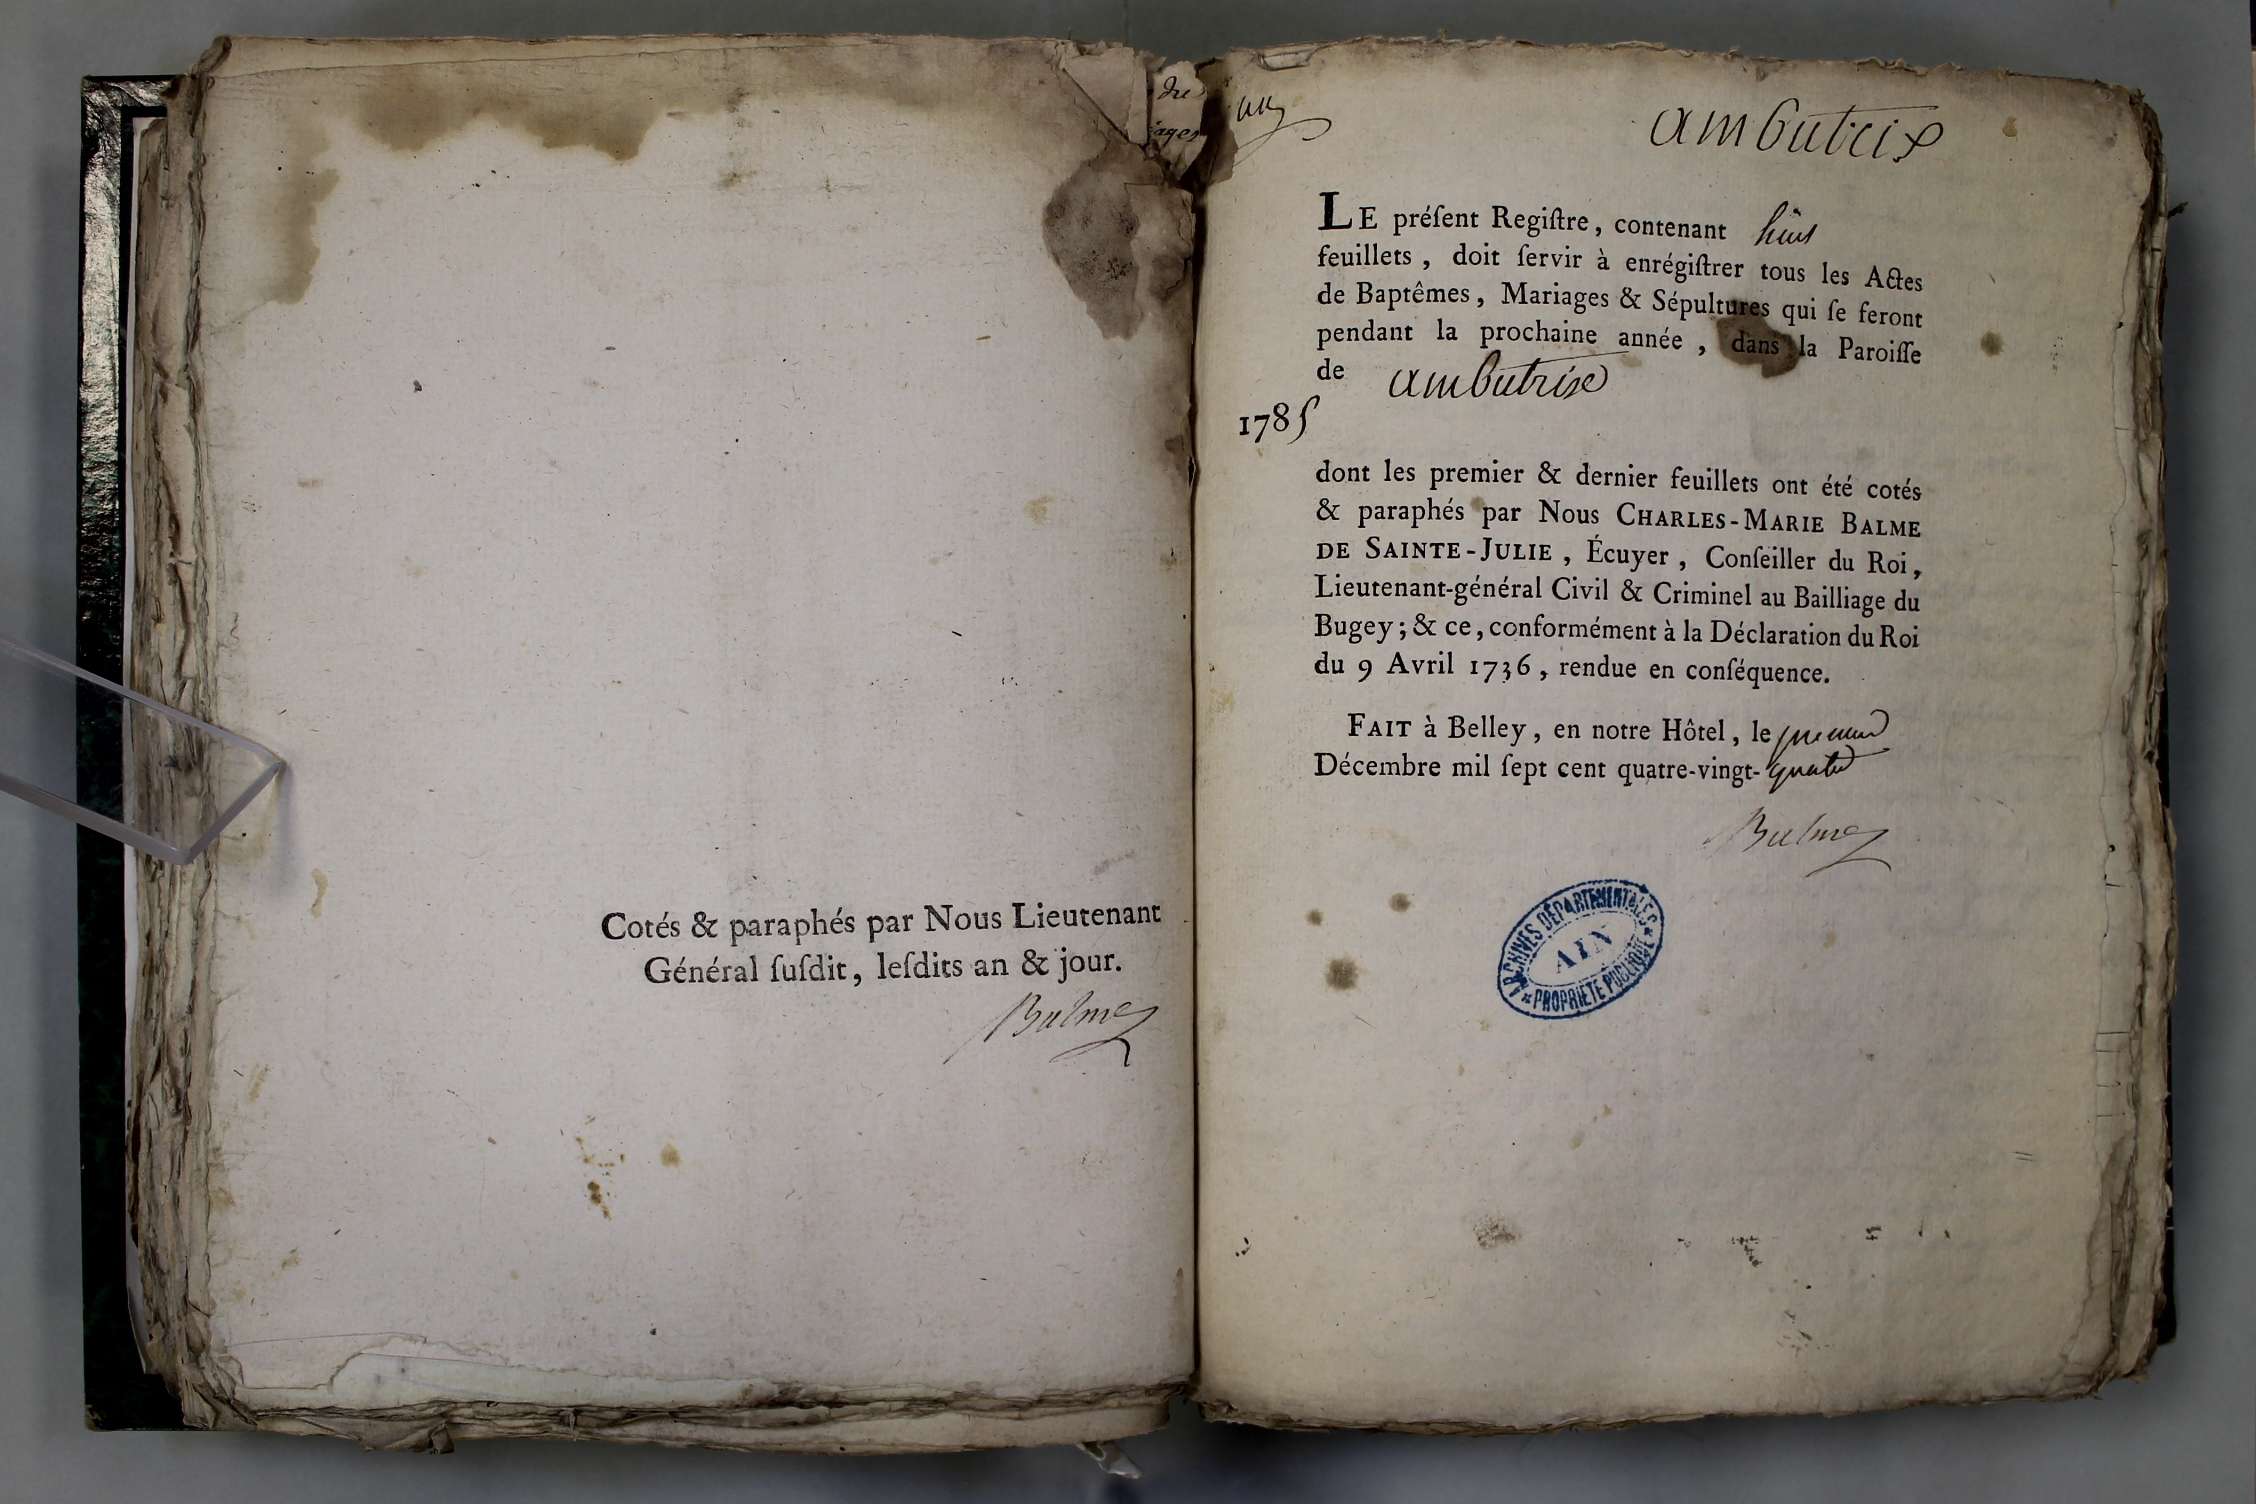 Cotés & paraphés par Nous Lieutenant
Général ſuſdit, leſdits an & jour.
Balme
du
ages
ambutrix
LE préſent Regiſtre, contenant huit
feuillets, doit ſervir à enrégiſtrer tous les Actes
de Baptêmes, Mariages & Sépultures qui ſe feront
pendant la prochaine année, dans la Paroiſſe
de ambutrix
1785
dont les premier & dernier feuillets ont été cotés
& paraphés par Nous CHARLES-MARIE BALME
DE SAINTE-JULIE, Écuyer, Conſeiller du Roi,
Lieutenant-général Civil & Criminel au Bailliage du
Bugey; & ce, conformément à la Déclaration du Roi
du 9 Avril 1736, rendue en conſéquence.
FAIT à Belley, en notre Hôtel, le premier
Décembre mil ſept cent quatre-vingt-quatre
Balme
ARCHIVES DÉPARTEMENTALES
AIN
* PROPRIÉTÉ PUBLIQUE *